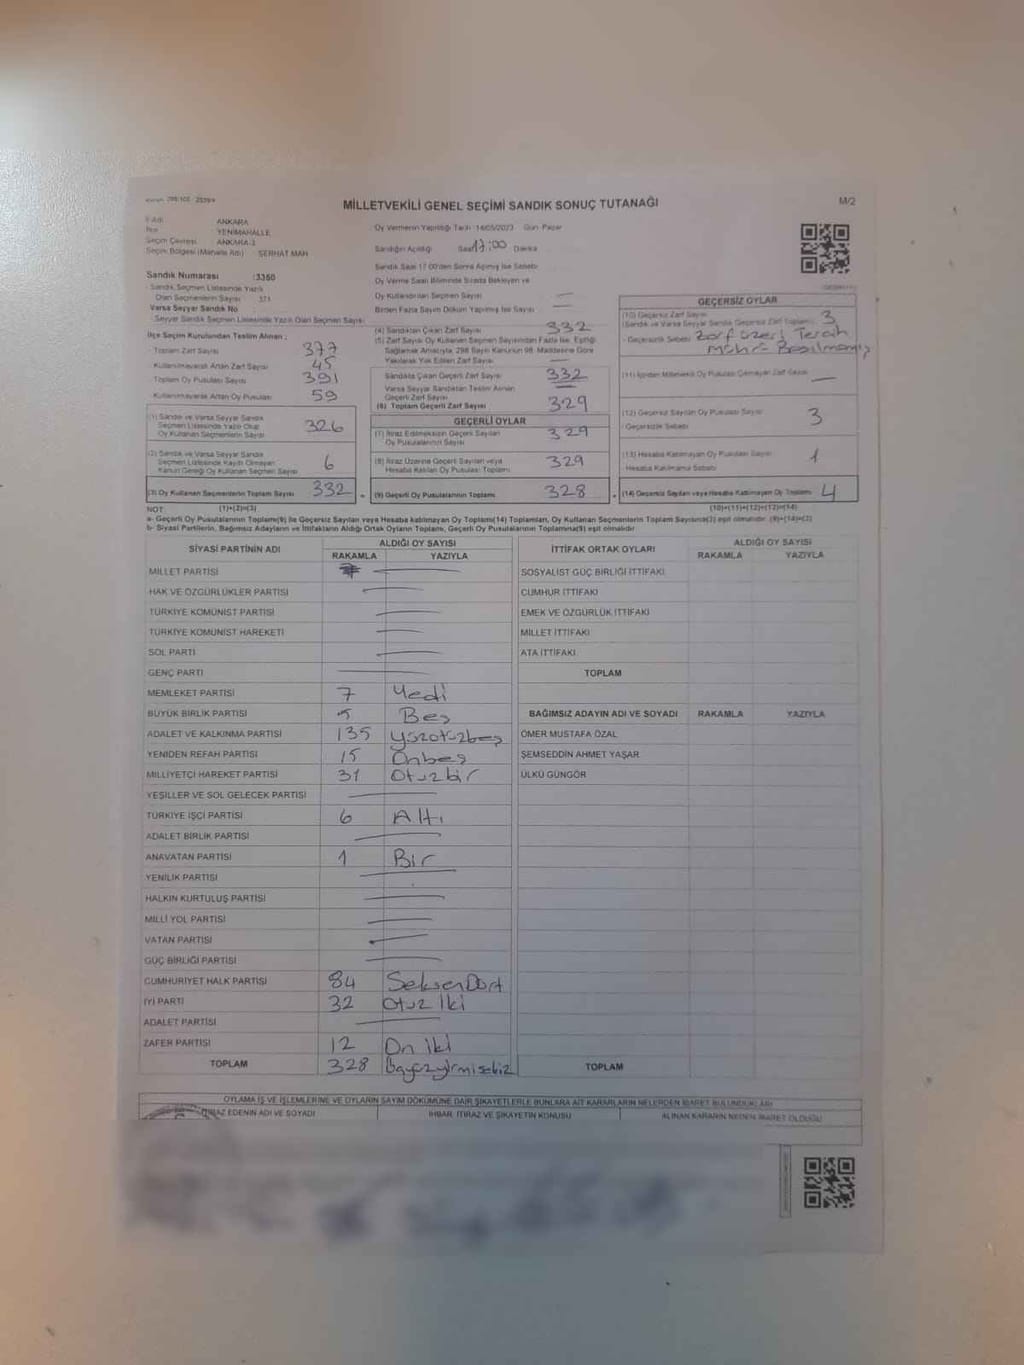 MİLLETVEKİLİ GENEL SEÇİMİ SANDIK SONUÇ TUTANAĞI
M/2
ANKARA
İlçe YENİMAHALLE
Seçim Çevresi ANKARA-3
Seçim Bölgesi (Mahalle Adı) SERHAT MAH
Sandık Numarası :3360
Sandık Seçmen Listesinde Yazılı
Olan Seçmenlerin Sayısı 371
Varsa Seyyar Sandık No
Seyyar Sandık Seçmen Listesinde Yazılı Olan Seçmen Sayısı
İlçe Seçim Kurulundan Teslim Alınan ;
Toplam Zarf Sayısı 377
Kullanılmayarak Artan Zarf Sayısı 45
Toplam Oy Pusulası Sayısı 391
Kullanılmayarak Artan Oy Pusulası 59
(1) Sandık ve Varsa Seyyar Sandık
Seçmen Listesinde Yazılı Olup
Oy Kullanan Seçmenlerin Sayısı 326
(2) Sandık ve Varsa Seyyar Sandık
Seçmen Listesinde Kayıtlı Olmayan
Kanun Gereği Oy Kullanan Seçmen Sayısı 6
(3) Oy Kullanan Seçmenlerin Toplam Sayısı 332
Oy Vermenin Yapıldığı Tarih 14/05/2023 Gün Pazar
Sandığın Açıldığı Saat 17:00 Dakika
Sandık Saat 17.00'den Sonra Açılmış İse Sebebi
Oy Verme Saati Bitiminde Sırada Bekleyen ve
Oy Kullandırılan Seçmen Sayısı —
Birden Fazla Sayım Döküm Yapılmış İse Sayısı —
(4) Sandıktan Çıkan Zarf Sayısı 332
(5) Zarf Sayısı Oy Kullanan Seçmen Sayısından Fazla İse, Eşitliği
Sağlamak Amacıyla, 298 Sayılı Kanunun 98. Maddesine Göre
Yakılarak Yok Edilen Zarf Sayısı —
Sandıkta Çıkan Geçerli Zarf Sayısı 332
Varsa Seyyar Sandıktan Teslim Alınan
Geçerli Zarf Sayısı —
(6) Toplam Geçerli Zarf Sayısı 329
GEÇERLİ OYLAR
(7) İtiraz Edilmeksizin Geçerli Sayılan
Oy Pusulalarının Sayısı 329
(8) İtiraz Üzerine Geçerli Sayılan veya
Hesaba Katılan Oy Pusulası Toplamı 329
(9) Geçerli Oy Pusulalarının Toplamı 328
GEÇERSİZ OYLAR
(10) Geçersiz Zarf Sayısı
(Sandık ve Varsa Seyyar Sandık Geçersiz Zarf Toplamı) 3
- Geçersizlik Sebebi Zarf üzeri Tercih
Mührü Basılmamış
(11) İçinden Milletvekili Oy Pusulası Çıkmayan Zarf Sayısı —
(12) Geçersiz Sayılan Oy Pusulası Sayısı 3
Geçersizlik Sebebi
(13) Hesaba Katılmayan Oy Pusulası Sayısı 1
Hesaba Katılmama Sebebi
(14) Geçersiz Sayılan veya Hesaba Katılmayan Oy Toplamı 4
NOT: (1)+(2)=(3) (10)+(11)+(12)+(13)=(14)
a- Geçerli Oy Pusulalarının Toplamı(9) ile Geçersiz Sayılan veya Hesaba katılmayan Oy Toplamı(14) Toplamları, Oy Kullanan Seçmenlerin Toplam Sayısına(3) eşit olmalıdır. (9)+(14)=(3)
b- Siyasi Partilerin, Bağımsız Adayların ve İttifakların Aldığı Ortak Oyların Toplamı, Geçerli Oy Pusulalarının Toplamına(9) eşit olmalıdır
SİYASİ PARTİNİN ADI ALDIĞI OY SAYISI
RAKAMLA YAZIYLA
MİLLET PARTİSİ —
HAK VE ÖZGÜRLÜKLER PARTİSİ —
TÜRKİYE KOMÜNİST PARTİSİ —
TÜRKİYE KOMÜNİST HAREKETİ —
SOL PARTİ —
GENÇ PARTİ —
MEMLEKET PARTİSİ 7 Yedi
BÜYÜK BİRLİK PARTİSİ 5 Beş
ADALET VE KALKINMA PARTİSİ 135 Yüzotuzbeş
YENİDEN REFAH PARTİSİ 15 Onbeş
MİLLİYETÇİ HAREKET PARTİSİ 31 Otuzbir
YEŞİLLER VE SOL GELECEK PARTİSİ —
TÜRKİYE İŞÇİ PARTİSİ 6 Altı
ADALET BİRLİK PARTİSİ —
ANAVATAN PARTİSİ 1 Bir
YENİLİK PARTİSİ —
HALKIN KURTULUŞ PARTİSİ —
MİLLİ YOL PARTİSİ —
VATAN PARTİSİ —
GÜÇ BİRLİĞİ PARTİSİ —
CUMHURİYET HALK PARTİSİ 84 SeksenDört
İYİ PARTİ 32 Otuz İki
ADALET PARTİSİ —
ZAFER PARTİSİ 12 On iki
TOPLAM 328
İTTİFAK ORTAK OYLARI ALDIĞI OY SAYISI
RAKAMLA YAZIYLA
SOSYALİST GÜÇ BİRLİĞİ İTTİFAKI
CUMHUR İTTİFAKI
EMEK VE ÖZGÜRLÜK İTTİFAKI
MİLLET İTTİFAKI
ATA İTTİFAKI
TOPLAM
BAĞIMSIZ ADAYIN ADI VE SOYADI RAKAMLA YAZIYLA
ÖMER MUSTAFA ÖZAL
ŞEMSEDDİN AHMET YAŞAR
ÜLKÜ GÜNGÖR
TOPLAM
OYLAMA İŞ VE İŞLEMLERİNE VE OYLARIN SAYIM DÖKÜMÜNE DAİR ŞİKAYETLERLE BUNLARA AİT KARARLARIN NELERDEN İBARET BULUNDUKLARI
İTİRAZ EDENİN ADI VE SOYADI İHBAR, İTİRAZ VE ŞİKAYETİN KONUSU ALINAN KARARIN NEDEN İBARET OLDUĞU